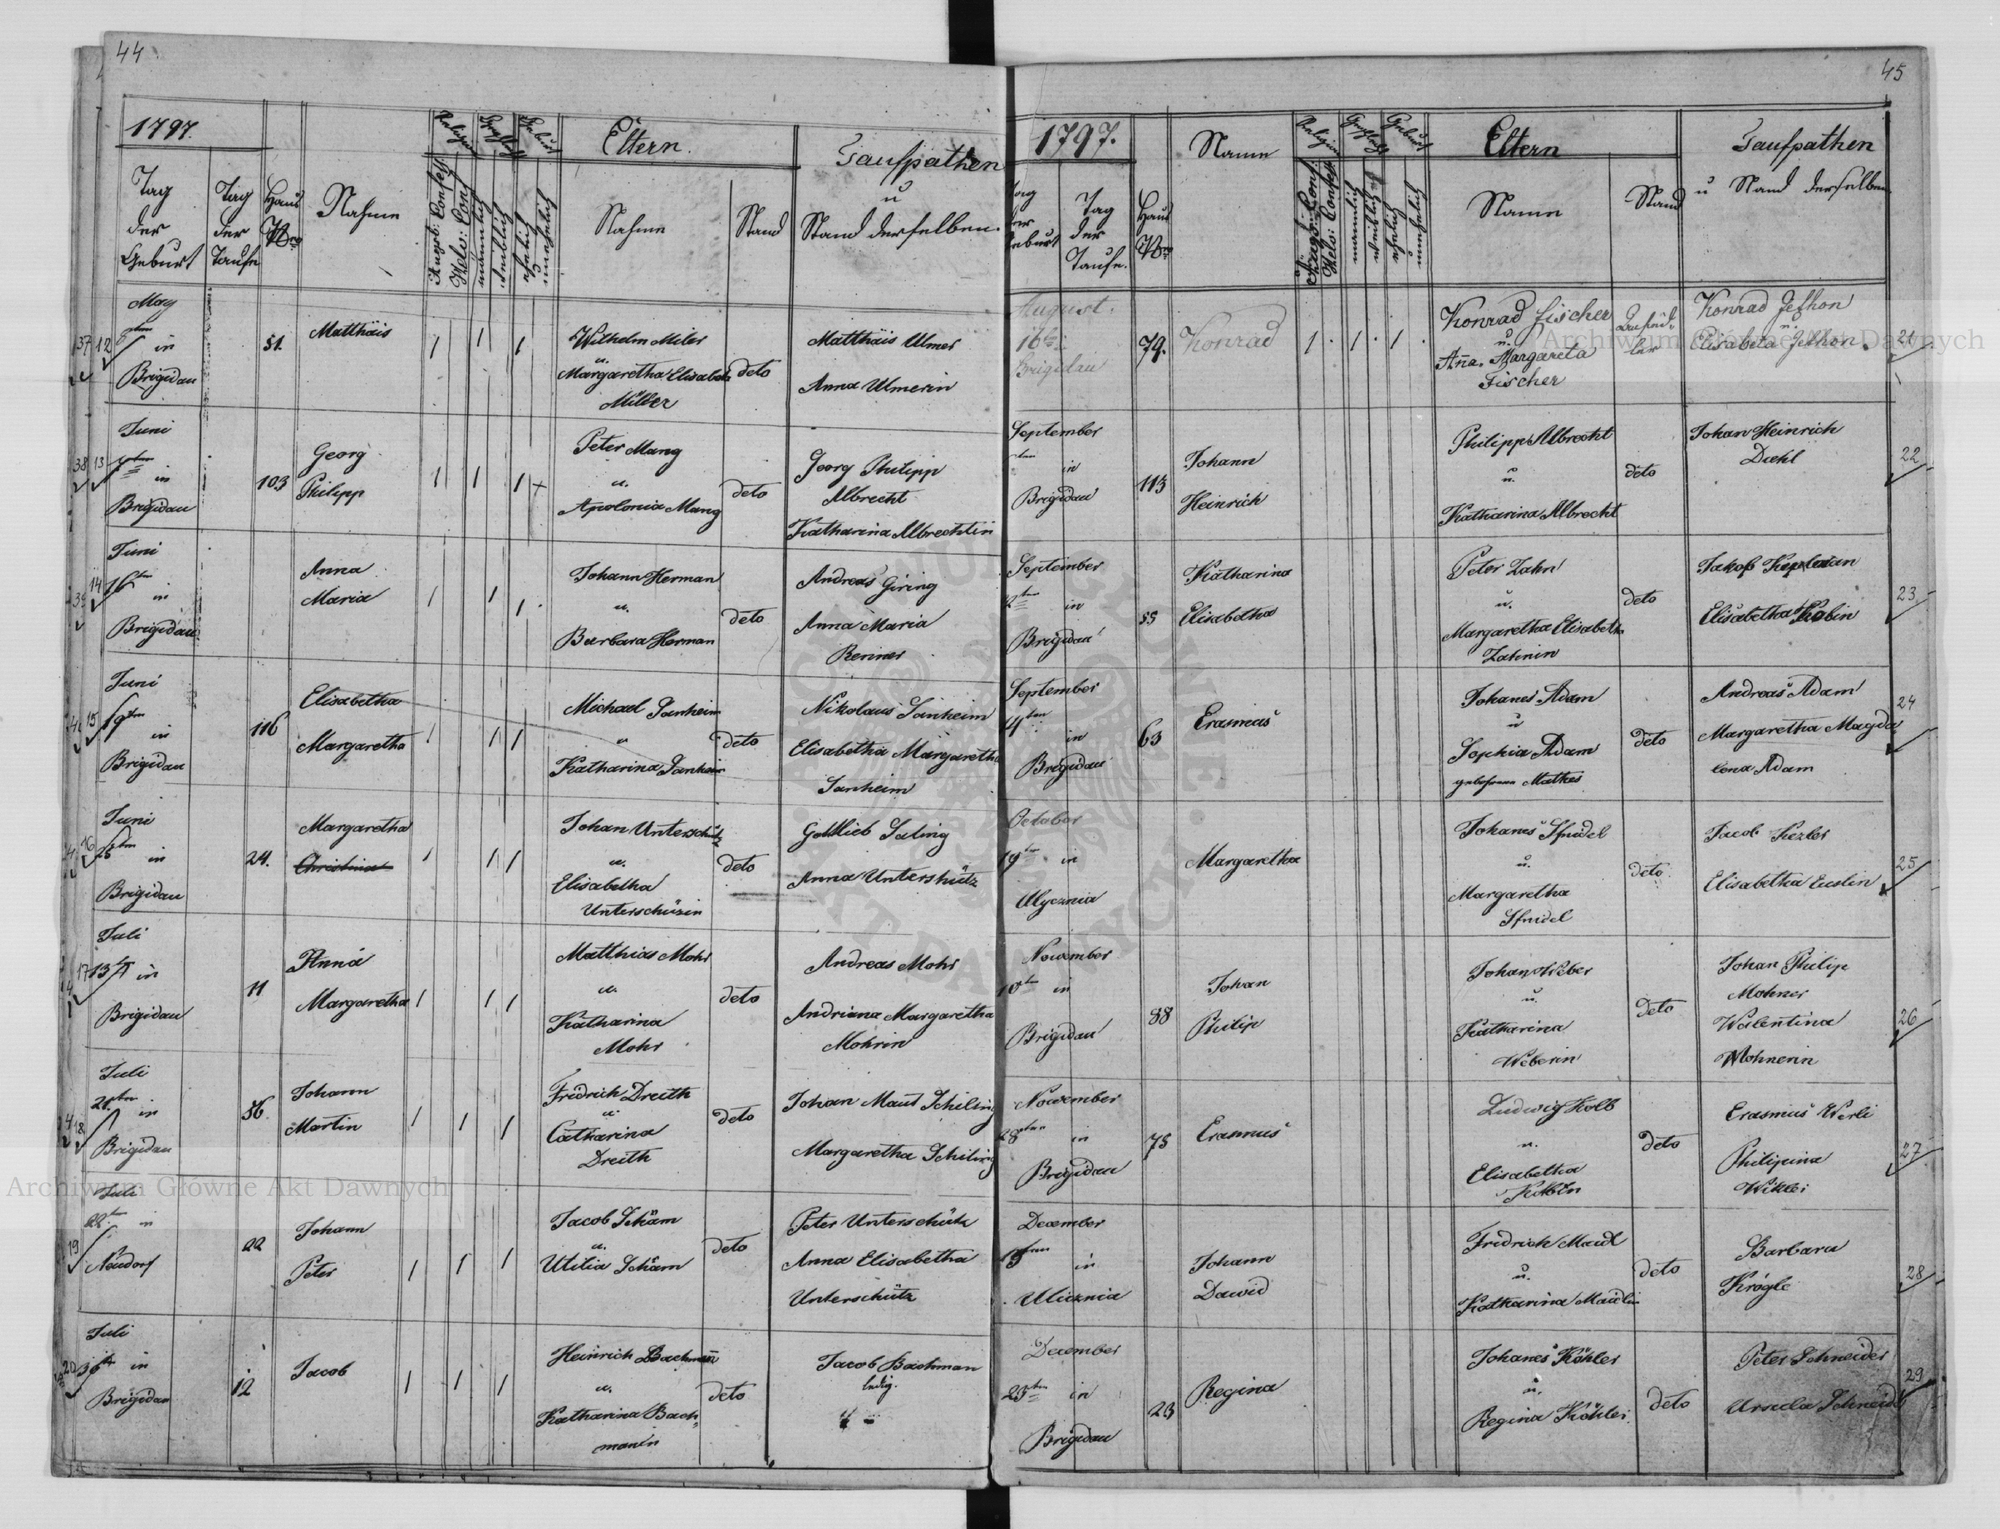 44
1797.
Religion
Geschlecht
Geburt
Eltern.
Taufpathen
u
Stand derselben.
Tag
der
Geburt
Tag
der
Taufe
Haus
Nro
Nahme
Augsb: Confess
Helv: Conf
männlich
weiblich
ehelich
unehelich
Nahme
Stand
May
in
Brigidau
12
51.
Matthäis
Wilhelm Miler
u.
Margaretha Elisabeta
Miller
deto
Matthäis Ulmer
Anna Ulmerin
Juni
in
Brigidau
13
103
Georg
Philipp
Peter Mang
u.
Apolonia Mang
deto
Georg Philipp
Albrecht
Katharina Albrechtin
Juni
16ten
in
Brigidau
14
Anna
Maria
Johann Herman
u.
Barbara Herman
deto
Andreas Giring
Anna Maria
Renner
Juni
19ten
in
Brigidau
15
116
Elisabetha
Margaretha
Michael Janheim
u
Katharina Janheim
deto
Nikolaus Janheim
Elisabetha Margaretha
Janheim
Juni
in
Brigidau
16
24.
Margaretha
Christina
Johan Unterschütz
u.
Elisabetha
Unterschüzin
deto
Gottlieb Saling
Anna Unterschütz
Juli
13t in
Brigidau
17
11
Anna
Margaretha
Matthias Mohr
u.
Katharina
Mohr
deto
Andreas Mohr
Andriana Margaretha
Mohrin
Juli
21ten
in
Brigidau
18
56.
Johann
Martin
Fridrich Dreith
u
Catharina
Dreith
deto
Johan Maut Schiling
Margaretha Schiling
Juli
22ten
in
Neudorf
19
22
Johann
Peter
Jacob Schäm
u.
Utilia Schäm
deto
Peter Unterschütz
Anna Elisabetha
Unterschütz
Juli
in
Brigidau
20
12
Jacob
Heinrich Bachmann
u.
Katharina Bach-
manin
deto
Jacob Bachman
ledig.
45
1797.
Name
Religion
Geschlecht
Geburt
Eltern
Taufpathen
u Stand derselben
Tag
der
Geburt
Tag
der
Taufe.
Haus
Nro
Augsb: Conf
Helv: Confess
männlich
weiblich
ehelich
unehelich
Name
Stand
August.
16ten
Brigidau
79.
Konrad
Konrad Fischer
u.
Aña. Margareta
Fischer
Konrad Jethon
u
Elisabeta Jethon.
21
September
in
Brigidau
113
Johann
Heinrich
Philipp Albrecht
u.
Katharina Albrecht
deto
Johan Heinrich
Diehl
22
September
2ten
in
Brigidau
55
Katharina
Elisabetha
Peter Zahn
u.
Margaretha Elisabeth
Zahnin
deto
Jakob
Elisabetha
23
September
4ten
in
Brigidau
63
Erasmus
Johanes Adam
u
Sophia Adam
geborene Mathes
deto
Andreas Adam
Margaretha Magda
lena Adam
24
October
19ten in
Ulycznia
Margaretha
Johanes
u.
Margaretha
deto
Jacob Kezler
Elisabetha
25
November
10ten in
Brigidau
88
Johan
Philip
Johan Weber
u.
Katharina
Weberin
deto
Johan Philip
Mohner
Walentina
Mohnerin
26
November
28ten in
Brigidau
75
Erasmus
Ludwig Kolb
u.
Elisabetha
Kolbin
deto
Erasmus Werli
Philipina
27
December
in
Ulicznia
Johann
Dawid
Fridrich Maid
u.
Katharina Maidlin
deto
Barbara
Krögle
28
December
23ten in
Brigidau
23
Regina
Johanes Köhler
u.
Regina Köhler
deto
Peter Schneider
Ursula Schneid
29
Archiwum Główne Akt Dawnych
Archiwum Główne Akt Dawnych